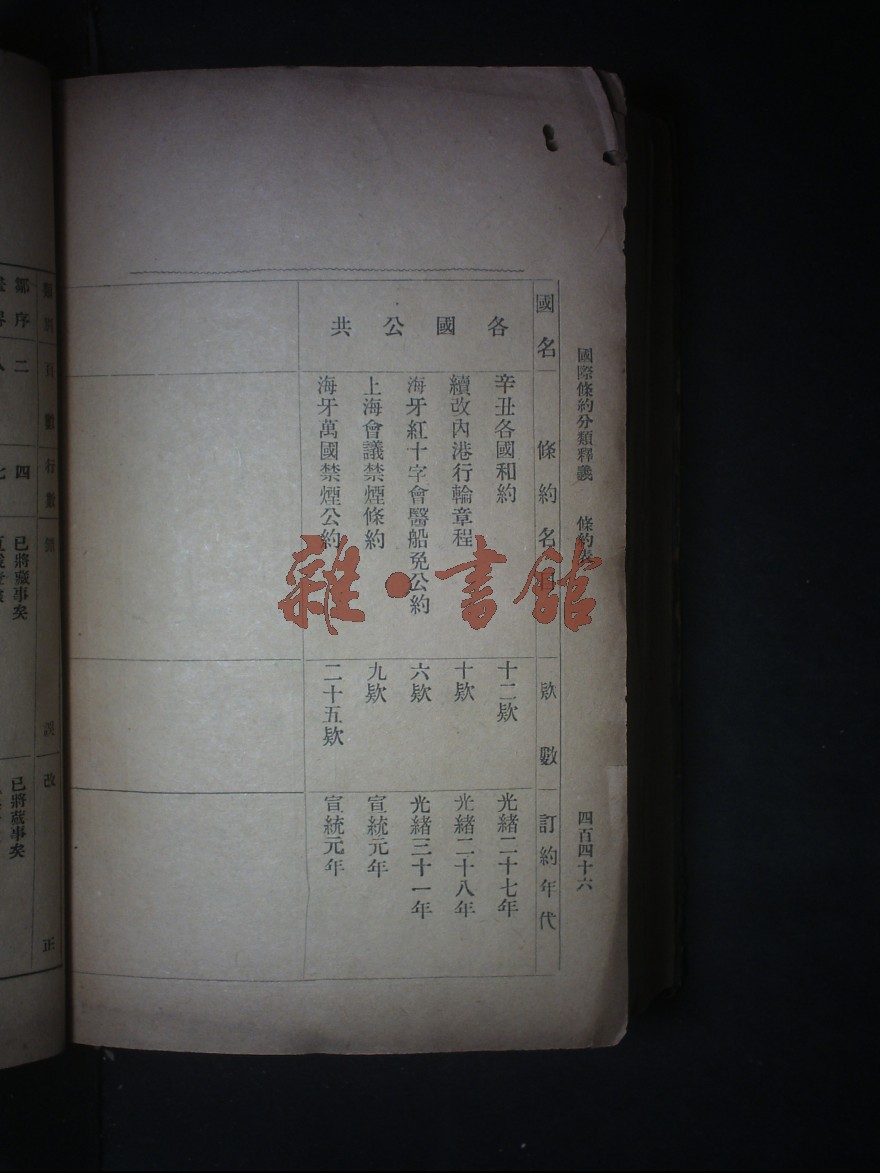 國際條約分類釋義　條約表　四百四十六
國名　條約名　款數　訂約年代
各國公共
辛丑各國和約　十二款　光緒二十七年
續改內港行輪章程　十款　光緒二十八年
海牙紅十字會醫船免公約　六款　光緒三十一年
上海會議禁煙條約　九款　宣統元年
海牙萬國禁煙公約　二十五款　宣統元年
雜·書館
類別　頁數　行數　誤　改正
鄒序　二　四　已將竄事矣　已將蕆事矣